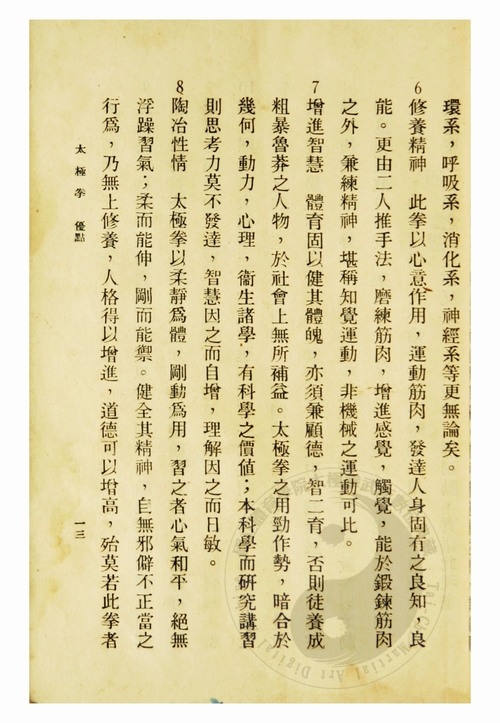 環系，呼吸系，消化系，神經系等更無論矣。
6 修養精神　此拳以心意作用，運動筋肉，發達人身固有之良知，良
能。更由二人推手法，磨練筋肉，增進感覺，觸覺，能於鍛鍊筋肉
之外，兼練精神，堪稱知覺運動，非機械之運動可比。
7 增進智慧　體育固以健其體魄，亦須兼顧德，智二育，否則徒養成
粗暴魯莽之人物，於社會上無所補益。太極拳之用勁作勢，暗合於
幾何，動力，心理，衞生諸學，有科學之價値；本科學而研究講習
則思考力莫不發達，智慧因之而自增，理解因之而日敏。
8 陶冶性情　太極拳以柔靜爲體，剛動爲用，習之者心氣和平，絕無
浮躁習氣；柔而能伸，剛而能禦。健全其精神，自無邪僻不正當之
行爲，乃無上修養，人格得以增進，道德可以增高，殆莫若此拳者
太極拳　優點
一三